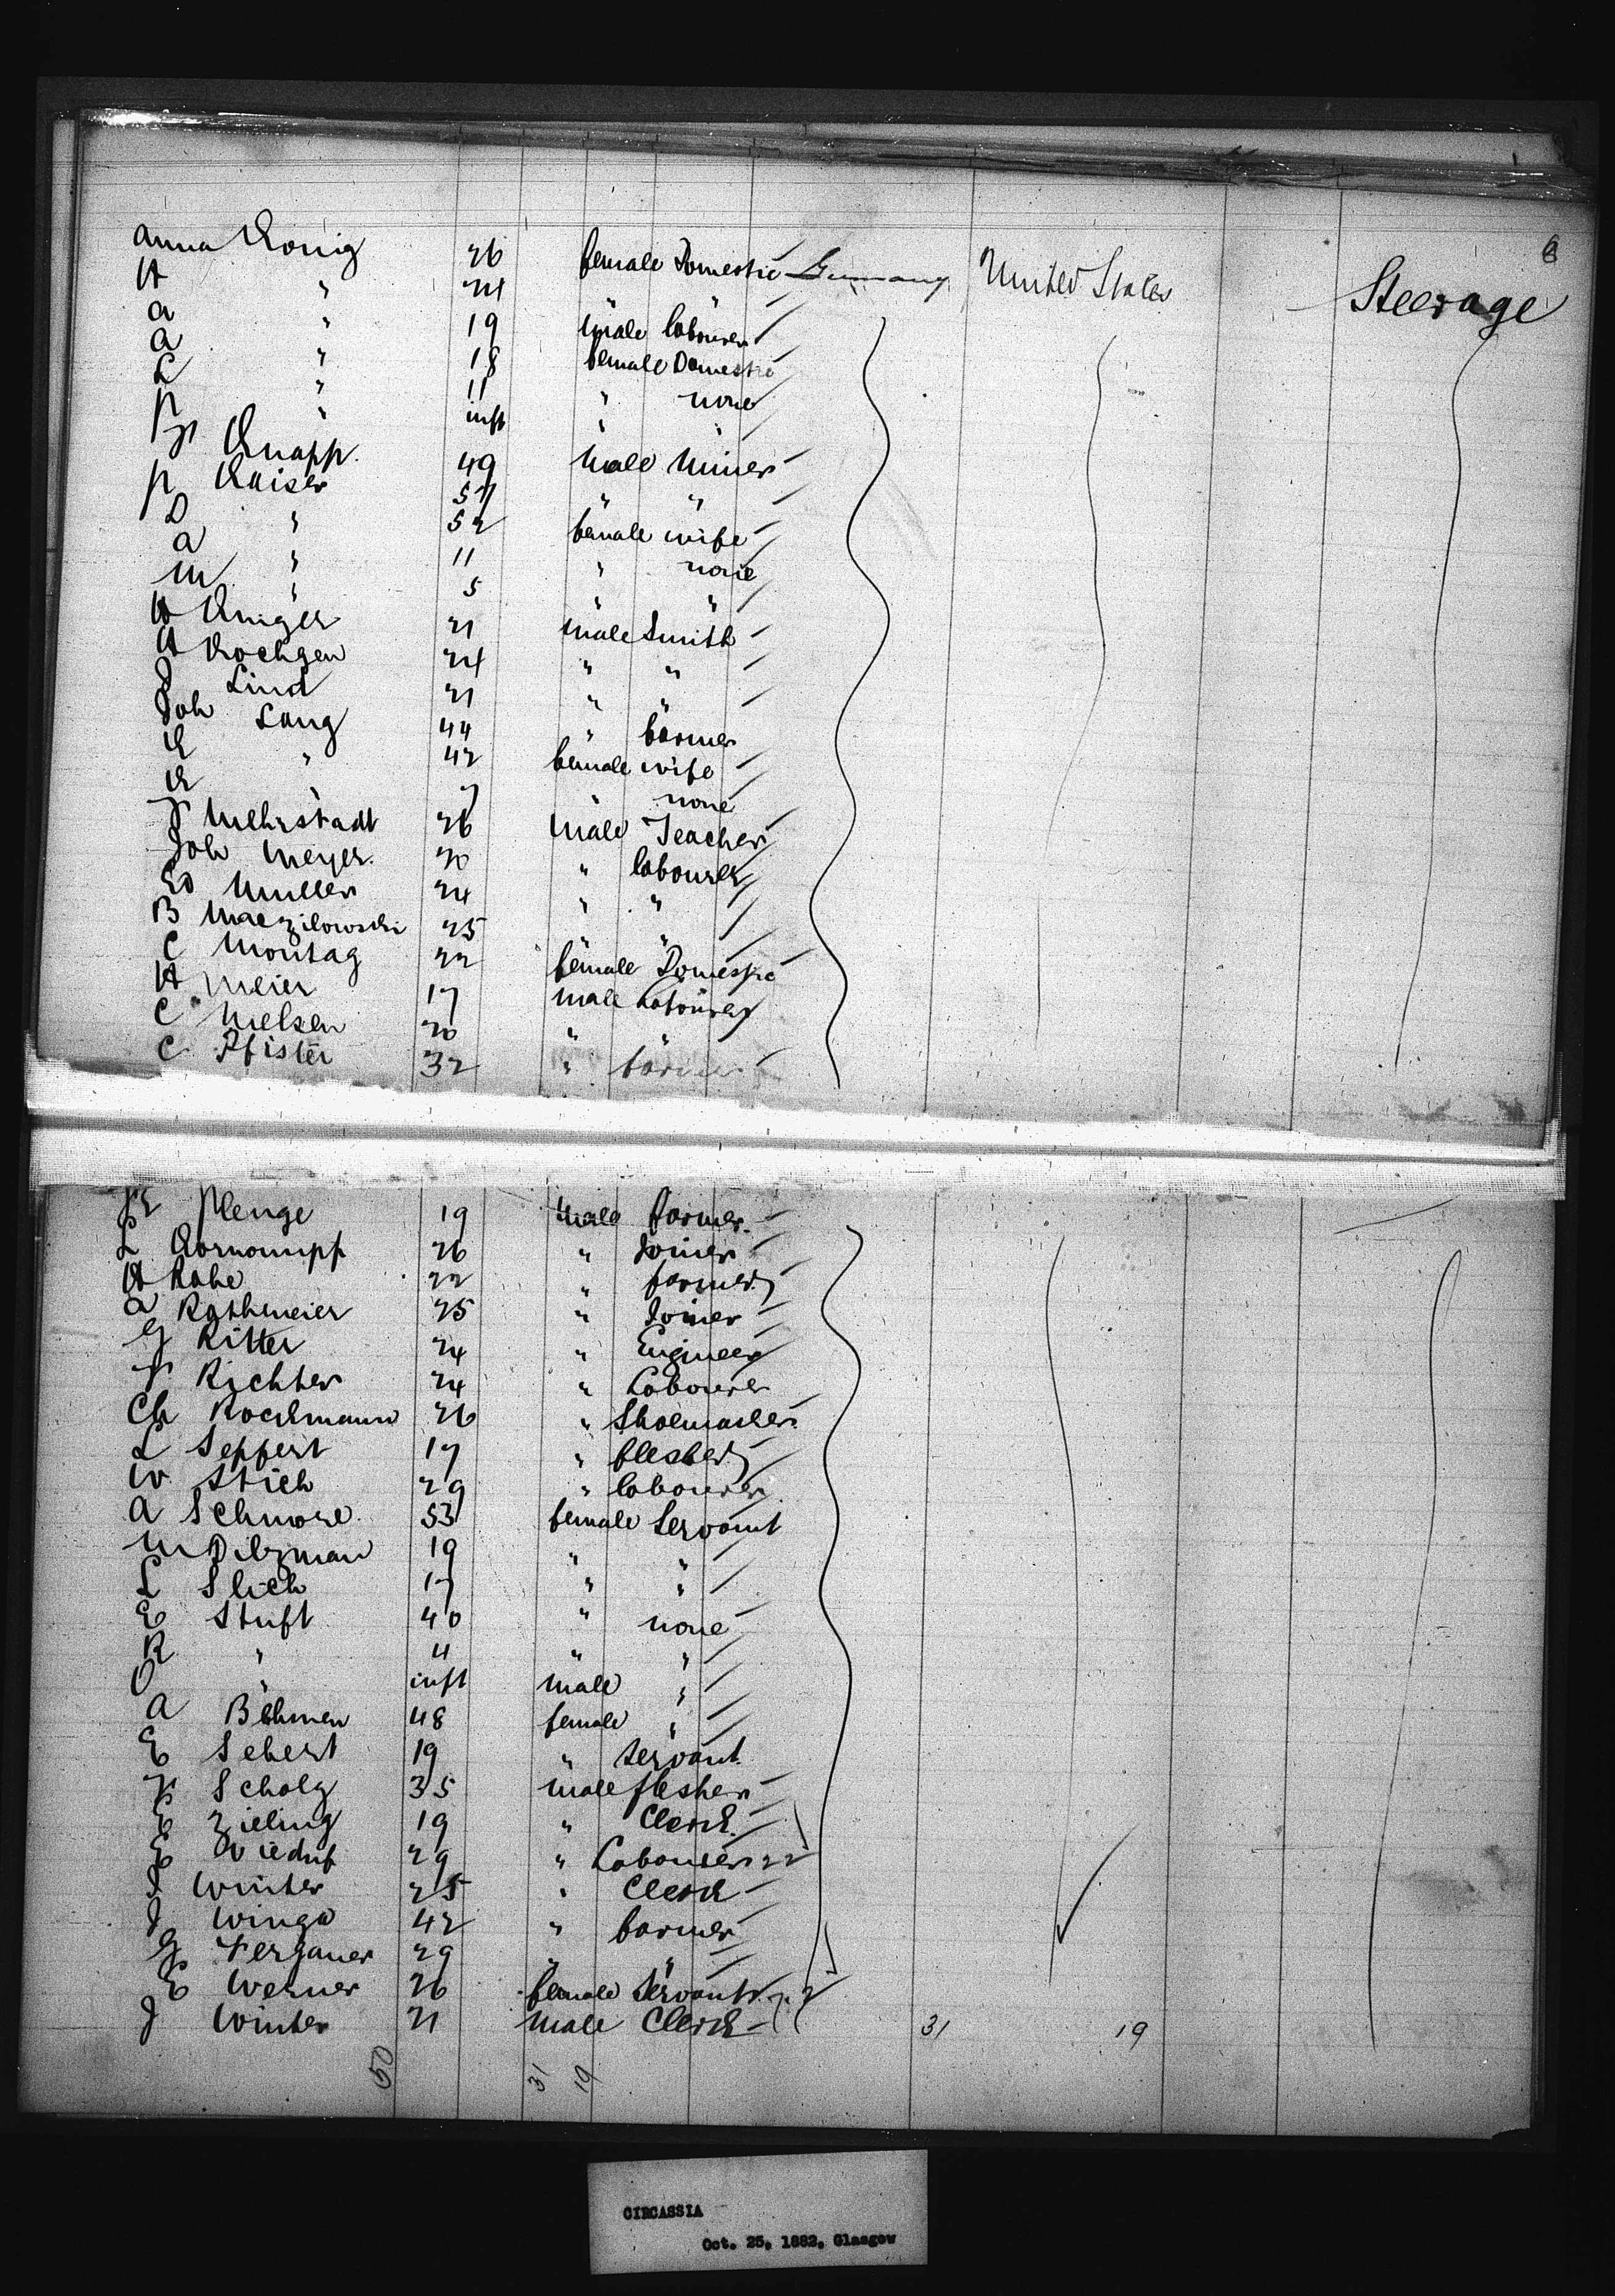 6
Anna König 26 female Domestic Germany United States Steerage
H " 24 " "
A " 19 male labourer
A " 18 female Domestic
L " 11 " none
P " inft " "
F Knapp 49 male Miner
P Kaiser 57 " "
D " 52 female wife
A " 11 " none
M " 5 " "
H Kruger 21 male Smith
H Kochgen 24 " "
J Lind 21 " "
Joh Lang 44 " farmer
E " 42 female wife
E " 7 " none
F Mehrstadt 26 male Teacher
Joh Meyer 20 " labourer
Ed Muller 24 " "
B 25 " "
C Montag 22 female Domestic
H Meier 17 male Labourer
C Nielsen 20 " "
C Pfister 32 " farmer
Plenge 19 male farmer
L 26 " Joiner
H Rahe 22 " farmer
A Rothmeier 25 " Joiner
G Ritter 24 " Engineer
F Richter 24 " Labourer
Ch Rockmann 26 " Shoemaker
L Seppert 17 " flesher
W Stich 29 " labourer
A Schmore 53 female Servant
M Dilzman 19 " "
L Slich 17 " "
E Stuft 40 " none
R " 4 " "
O " inft male "
A Böhmen 48 female "
E Sebert 19 " Servant
F Scholz 35 male flesher
E Zieling 19 " Clerk
E 29 " Labourer 22
J Winter 25 " Clerk
J Winga 42 " farmer
G 29 " "
E Werner 26 female Servant 2
J Winter 21 male Clerk 31 19
50 31 19
CIRCASSIA
Oct. 25, 1882, Glasgow